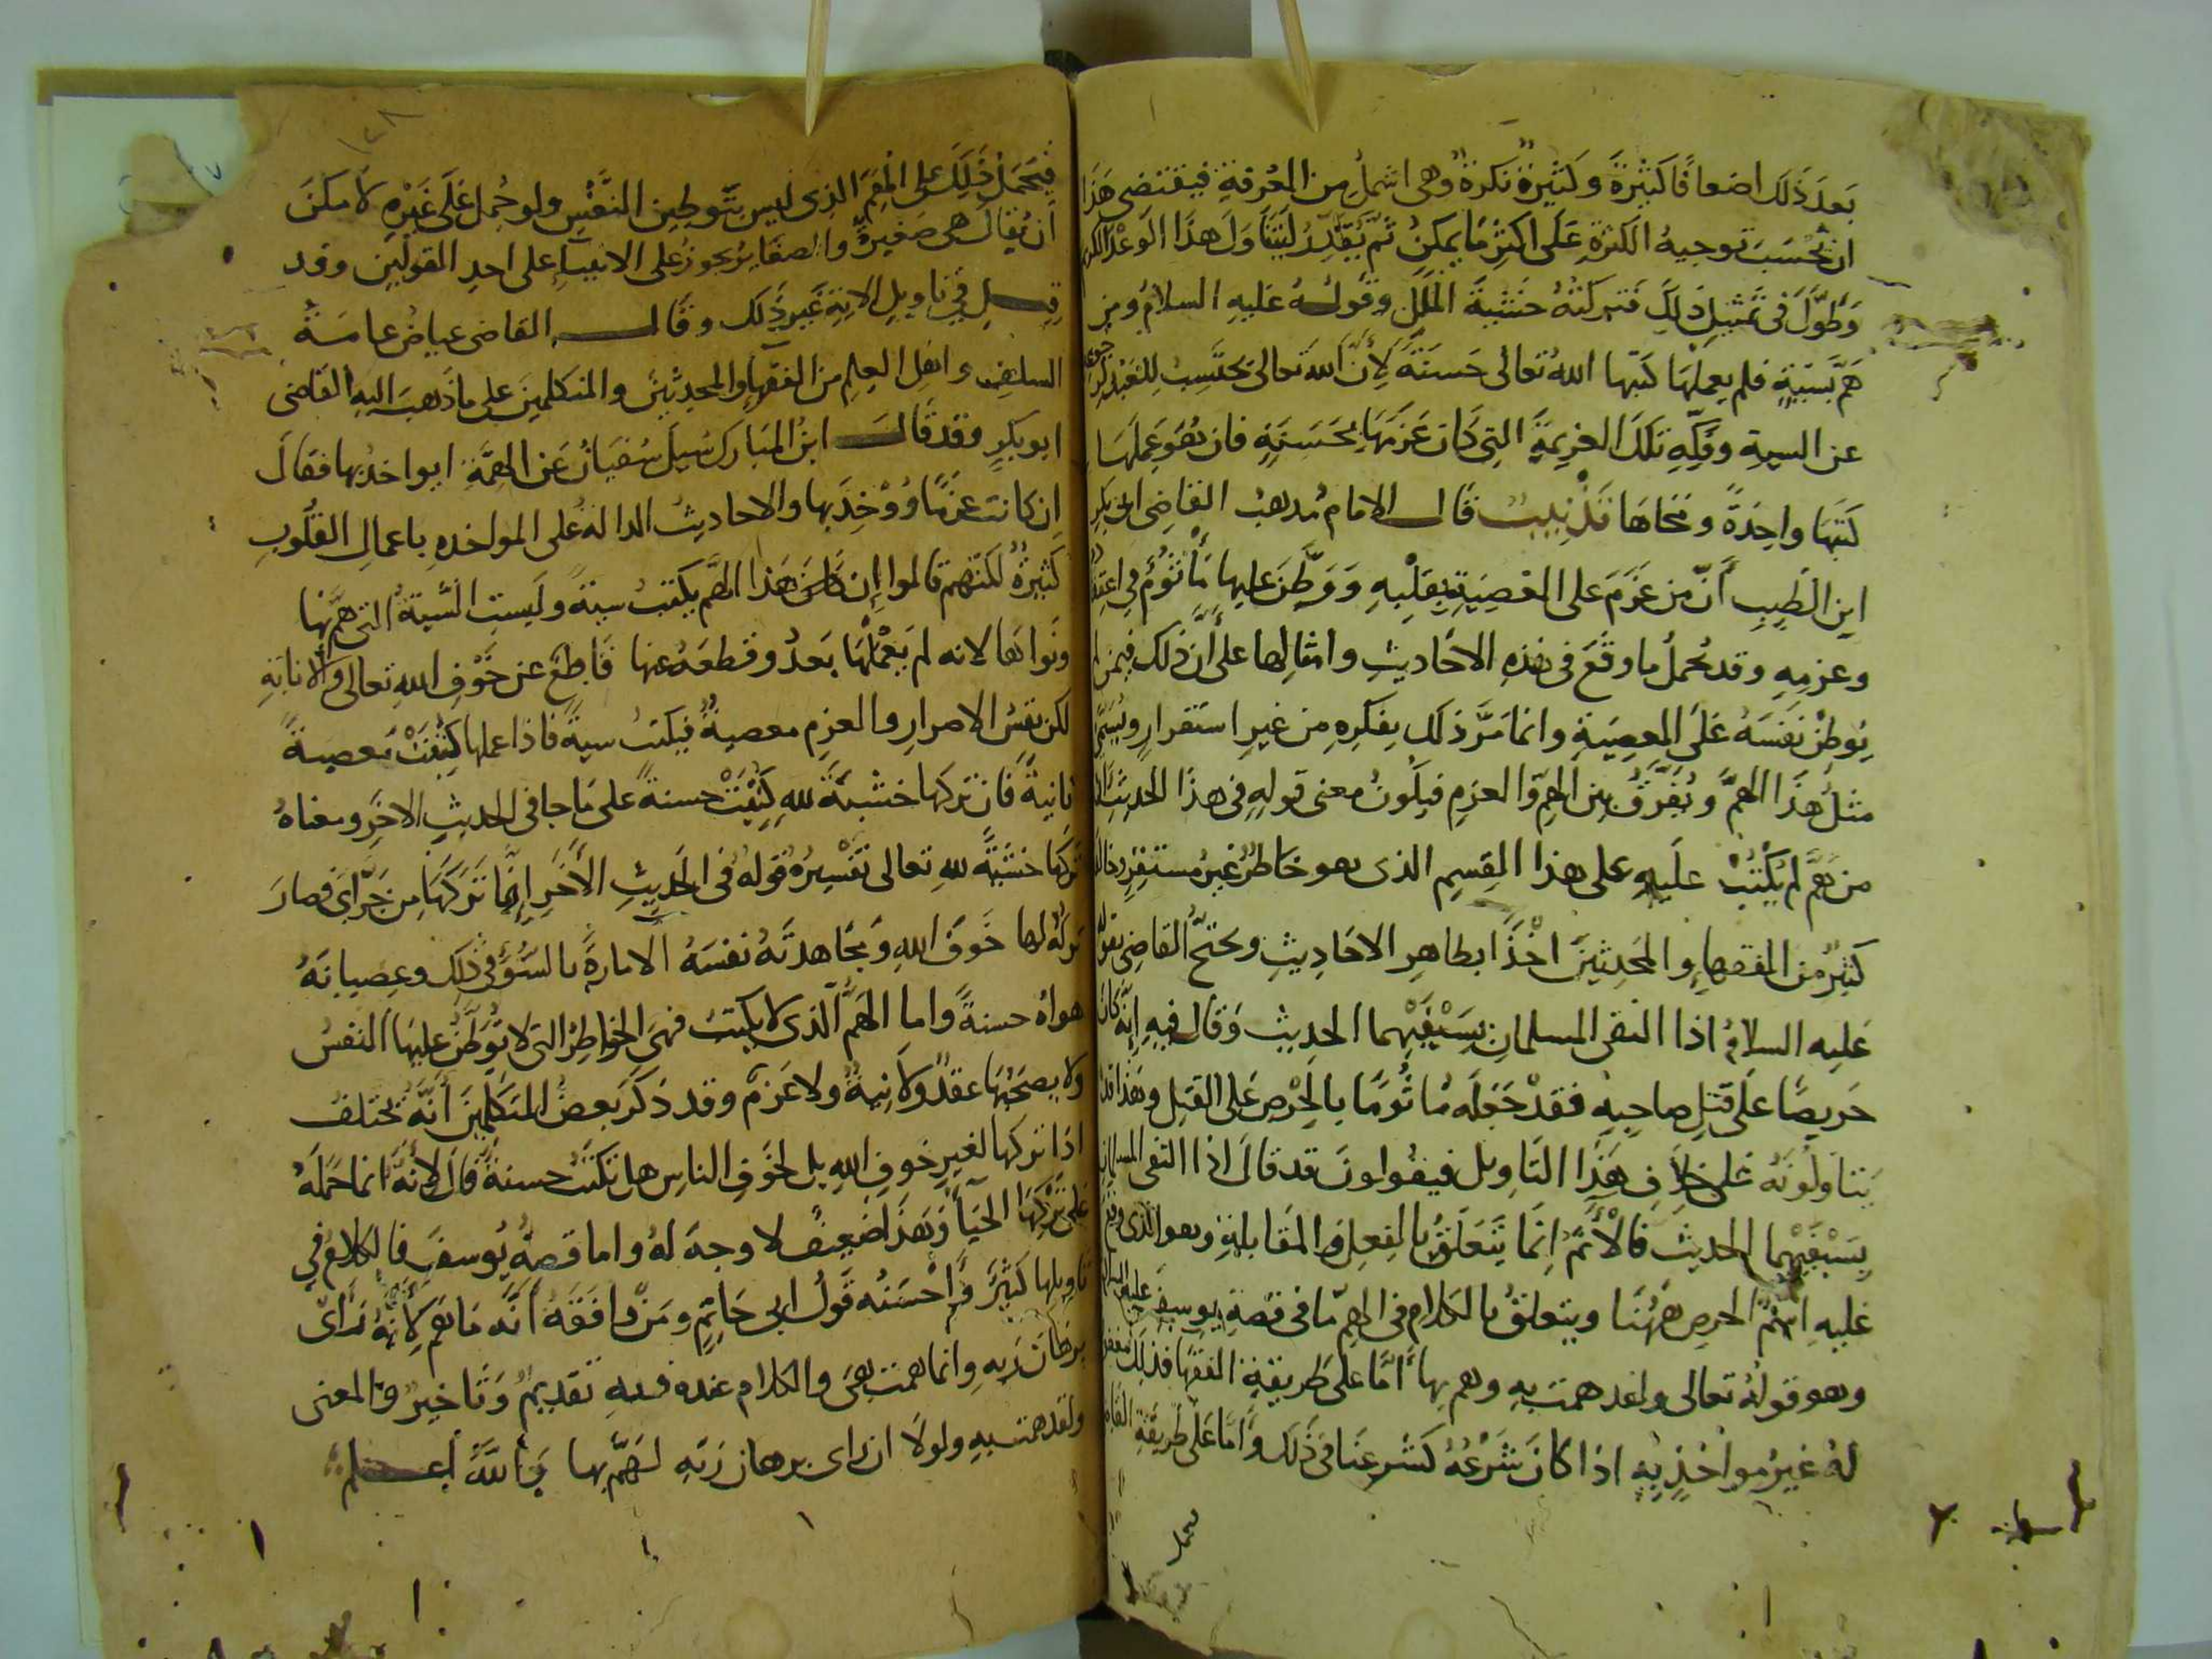 بَعدَ ذَلك اضعافًا كَثيرَةً وَكَثيرةٌ نكرةٌ وهى اشملُ مِن المعُرفةِ فيقتضى هَذَا
ان تُحْسَبَ توجيهُ الكثرةِ عَلَى اكثرِ مَا يمكِنُ ثم يُقدَّرُ لَيَتَنَاوَلَ هذا الوَعْدُ الكريم
وَطوَّلَ فى تمثيلِ ذلكَ فتركتهُ خَشْيَةَ المَلَلِ وقولهُ عَليهِ السلامُ ومن
هَمَّ بسَيّةٍ فلم يعملها كتبها اللهُ تعالى حَسَنَةً لأنَّ اللهَ تعالى يحتَسِبُ للعَبْدِ
عن السيةِ وفكّهِ تلكَ العزيمَةِ التى كَان عَزَمَهَا بحَسَنَةٍ فان هُوَ عَمِلَهَا
كَتَبَهَا واحِدَةً وَمَحَاهَا تَذْنِيبٌ قال الامامُ مذهبُ القاضِى ابى بَكرِ
ابنِ الطَّيِبِ أنّ من عَزَمَ على المَعْصِيَةِ بقَلْبِهِ وَوَطَّنَ عليها مَأْثومٌ فى اعتقاده
وعزمِهِ وقد يُحمَلُ ما وقَعَ فى هذه الاحَاديثِ وامثالِها على أنَّ ذلك فيمن لم
يُوَطِّنْ نَفسَهُ عَلَى المعصِيَةِ وانما مَرَّ ذلك بِفكرِهِ من غيرِ استقرارٍ ويُسَمَّى
مثلُ هَذَا الهمّ ويُفَرَّقُ بين الهمِّ والعزمِ فيكونُ معنى قوله فى هذا الحديثِ
من هَمَّ لم يُكْتَبْ عليهِ على هذا القِسمِ الذى هو خَاطرٌ غيرُ مستقِرٍّ
كثيرٌ من الفقهاءِ والمحدثينَ اخْذًا بظاهرِ الاحَادِيثِ ويحتجُّ القاضى بقولهِ
عَليه السلامُ اذا التقى المسلمانِ بِسَيْفَيْهِما الحديث وَقال فيهِ اِنّهُ كانَ
حَريصًا عَلى قتلِ صاحِبهِ فقدْ جَعَلَه مأثُومًا بالحِرْصِ عَلى القتلِ وهَذَا قد
يَتناوَلونَهُ عَلى خلافِ هَذا التَّاويل فيقولونَ قد قالَ اذا التقى المسلمانِ
بِسَيْفَيْهِما الحديث فالْأثمُ اِنما يَتَعَلَّقُ بالفِعلِ والمقَابلةِ وهو الذى وقعَ
عليهِ اسمُ الحرصِ هَهُنَا ويتعلقُ بالكلامِ فى الهمِّ ما فى قصةِ يوسفَ عليه السلام
وهو قولُهُ تعالى ولقد همت بِهِ وهم بها أمّا على طريقةِ الفقهَا فذلك مغفور
لهُ غيرُ مواخَذٍ بِهِ اذا كانَ شَرْعُهُ كَشَرعِنَا فى ذَلكَ وَأمّا عَلى طريقةِ القاضى
يحمل
١٢٨
فيُحمَلُ ذلكَ على الهَمِّ الذى ليس بتَوطينِ النَّفْسِ ولو حُمِلَ عَلى غَيْرهِ لأَمكَنَ
أن يُقالَ هى صَغيرةٌ والصغايرُ يجوزُ على الانبياءِ على احدِ القولَينِ وقد
قِيل فى تاويلِ الايةِ غَير ذَلك وقال القاضى عياضُ عامةُ
السلفِ واهل العِلمِ من الفقهاءِ والمحدثينَ والمتكلمينَ على ما ذَهبَ اليهِ القَاضى
ابو بكرٍ وقد قَالَ ابنُ المبَارك سُيِلَ سُفيَانُ عَن الهِمَّةِ ايواخذُ بها فقالَ
اِن كانت عَزمًا وُوْخِذَ بها والاحاديثُ الدالةُ على المواخذهِ باعمالِ القلُوبِ
كثيرةٌ لكنهم قالوا إن كانَ هَذا الهمّ يكتبُ سيةً وليستِ السَّيةُ التى همَّ بها
ونَواهَا لانه لم يَعْملْهَا بَعدُ وقطعَهُ عنها قَاطعٌ عن خَوْفِ اللهِ تعالى والانابَةِ
لكن نفسُ الاصرارِ والعزمِ معصيةٌ فيكتبُ سيةً فاذا عملها كُتِبَتْ معصيةً
ثانيةً فَان تركها خشيةً للهِ كُتِبَتْ حسنةً على مَا جا فى الحديثِ الاخَرِ ومعناهُ
تَرَكهَا خشيةً للهِ تعالى تَفْسِيرُهُ قولهُ فى الحَديثِ الأخَرِ إنَّما تَرَكَهَا مِن جَرَّاىَ فصارَ
تركُهُ لها خَوفَ اللهِ وَمُجَاهدتَهُ نفسَهُ الامارةَ بالسُّوْءِ فى ذلك وعِصيانَهُ
هواهُ حسنةً واما الهمُّ الّذى لا يكتبُ فهىَ الخواطرُ التى لا تُوَطَّنُ عليهَا النفسُ
ولا يصحَبُهَا عقدٌ ولانيةٌ ولا عَزمٌ وقد ذكَرَ بعضُ المتَكلّمينَ انّهُ يختلفُ
اذا تركها لغيرِ خوفِ اللهِ بل لخَوفِ الناسِ هل تكتبُ حسنةً قالَ لا لأنّهُ انما حَملهُ
عَلى تركِهَا الحَيَاءُ وَهَذا ضَعِيفٌ لا وجهَ لهُ واما قصةُ يُوسفَ فالكلامُ فى
تاويلها كَثيرٌ وأحْسَنُه قَولُ ابى حَاتمٍ ومَنْ وَافَقَهُ أنّه مَا هم لأنّهُ رأى
برهَانَ ربهِ وانما همت هىَ والكلام عنده فيهِ تقديمٌ وَتاخيرٌ والمعنى
ولقد همت بهِ ولولَا ان راى برهان رَبّهِ لهَمَّ بها وَاللهُ أعلم